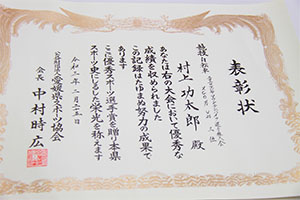 表彰状
競技 自転車
村上功太郎 殿
あなたは右の大会において優秀な
成績を収められました
この記録はたゆまぬ努力の成果で
あります
ここに優秀スポーツ選手賞を贈り本県
スポーツ史にしるした栄光を称えます
令和二年二月二十五日
公益財団法人愛媛県スポーツ協会
会長 中村時広